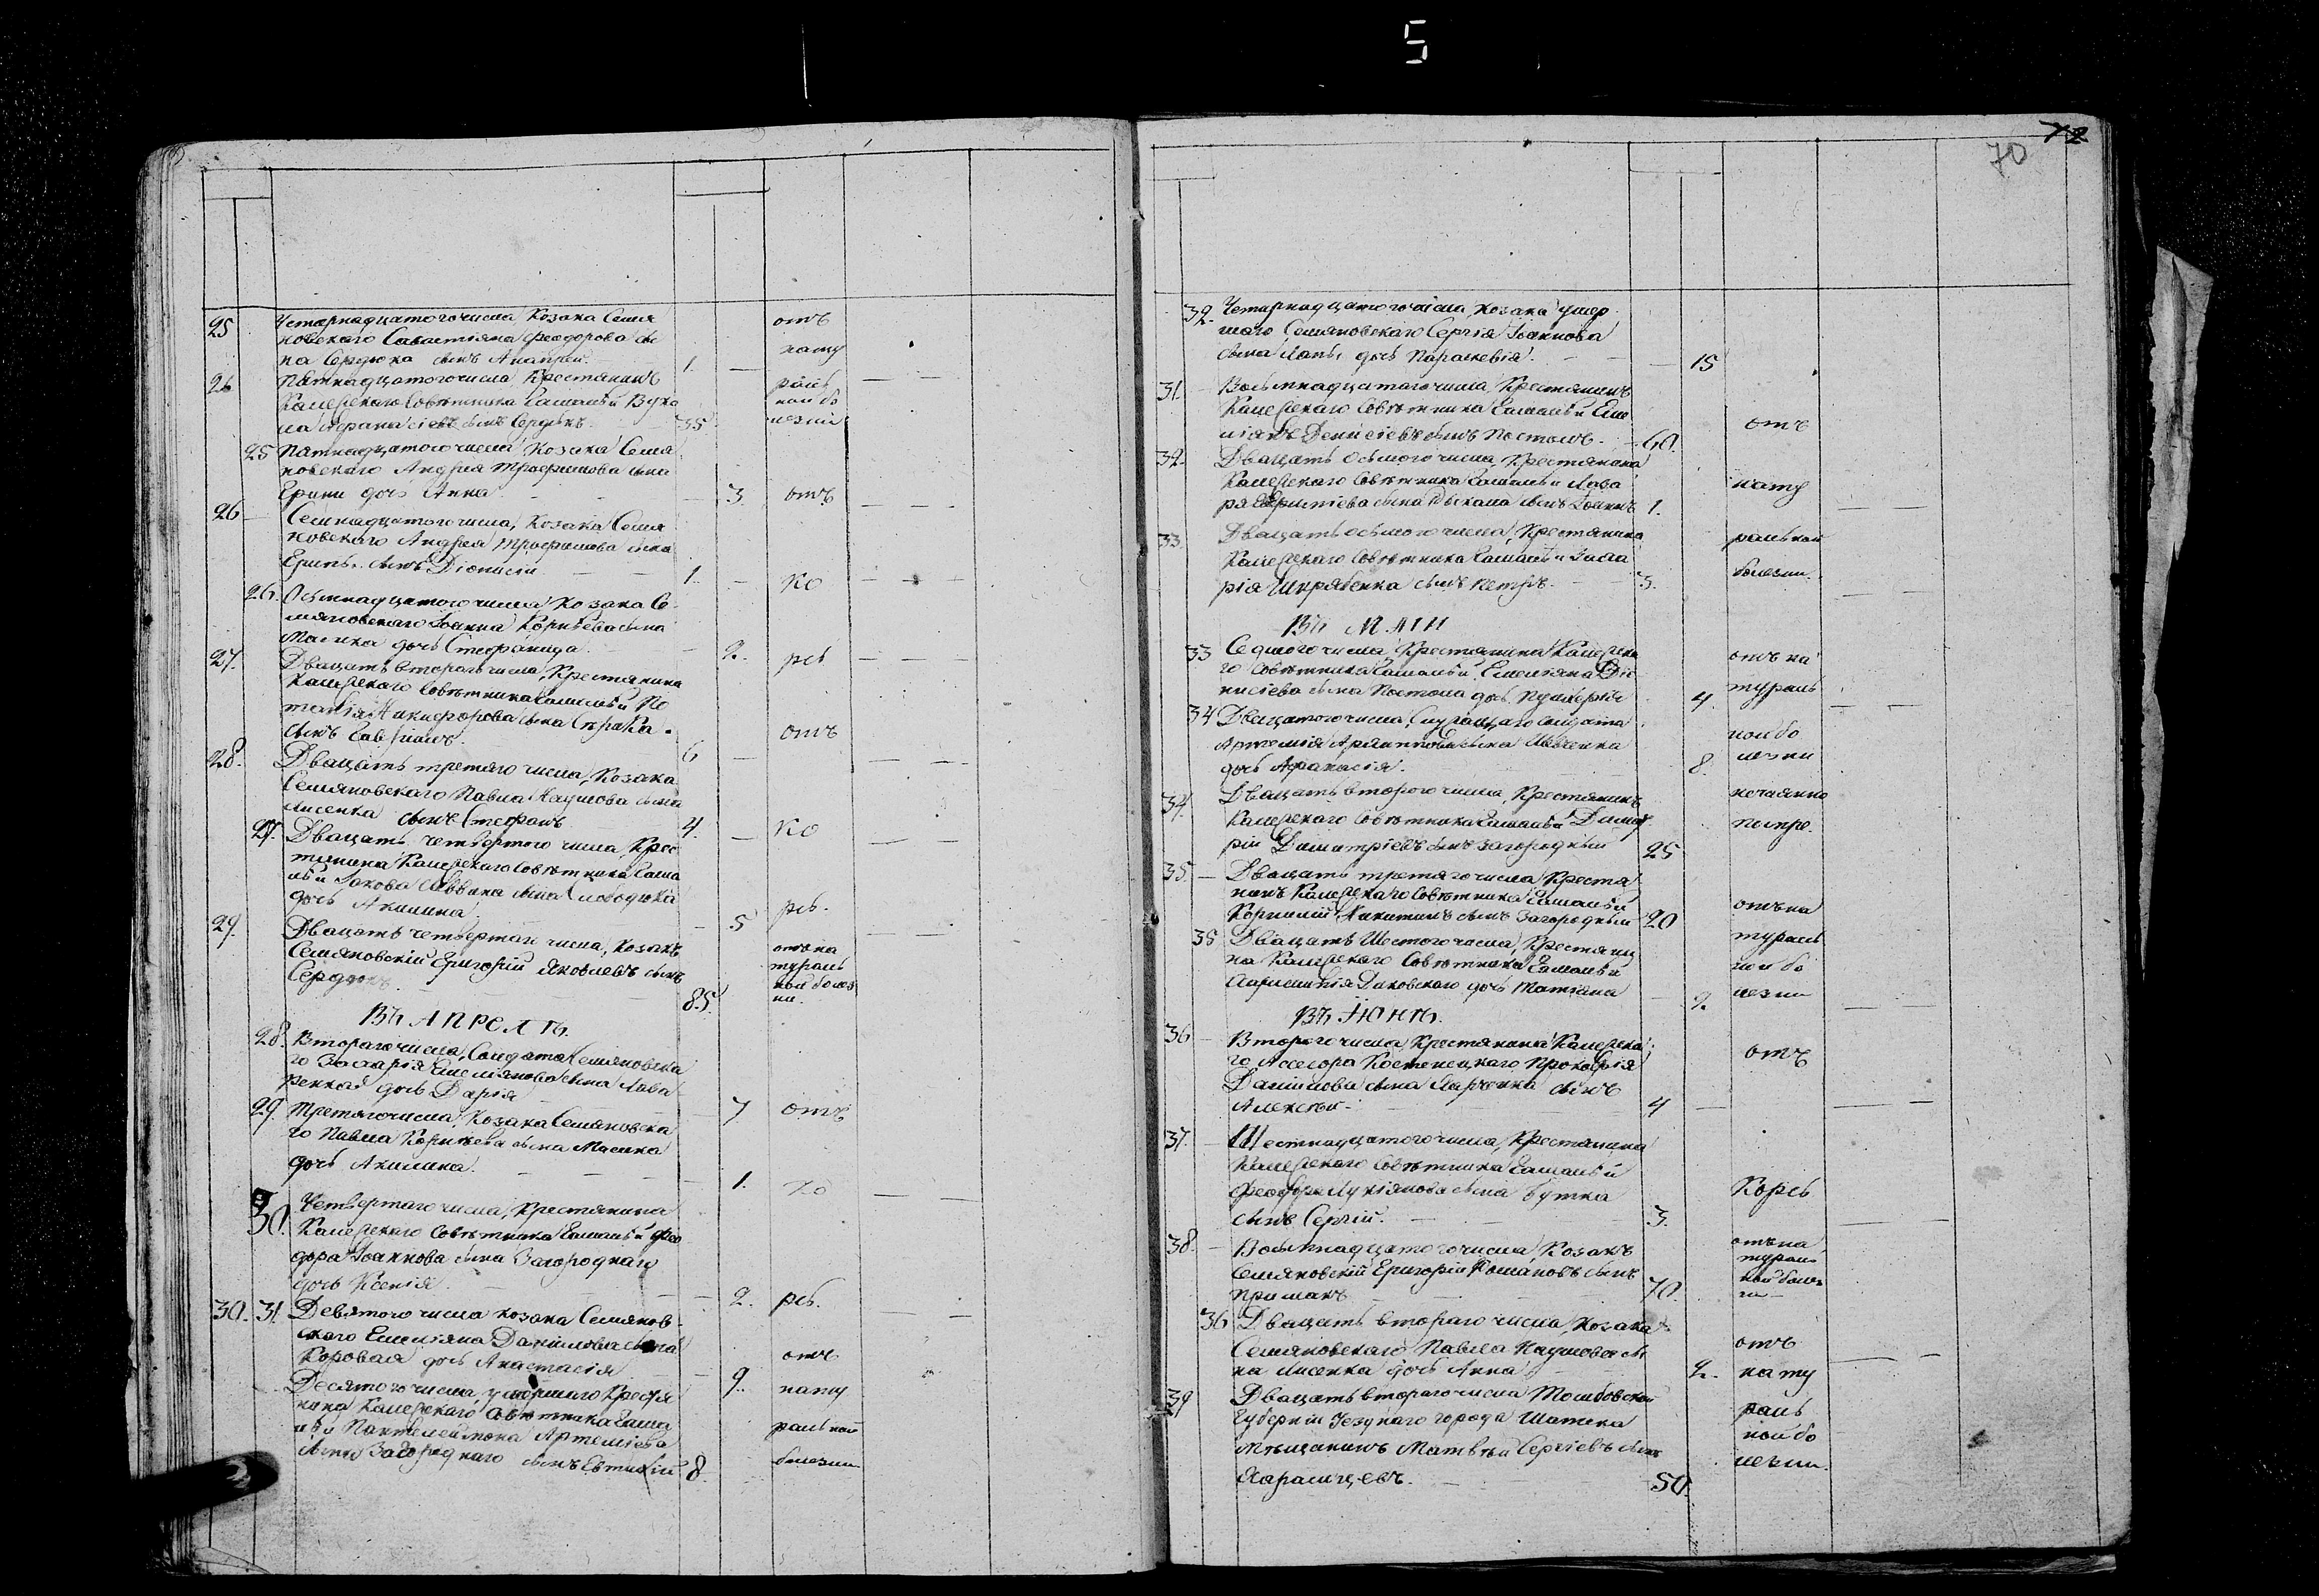 5
25 Четырнадцатого числа, Козака Семя
новскаго Савастіяна Феодорова сы
на Сердюка сынъ Анапрій 1. отъ нату
26 Пятнадцатого числа, Крестянинъ
Камерскаго Совѣтника Гамалѣи Вуко
ла Афанасіевъ сынъ Сердюкъ 35. раль ной бо лезни
25 Пятнадцатого числа, Козака Семя
новскаго Андрея Трофимова сына
Ерини дочь Анна 3. отъ
26 Семнадцатого числа, Козака Семя
новскаго Андрея Трофимова сына
Еринѣ сынъ Діонисій 1. ко
26. Осьмнадцатого числа, Козака Се
мяновскаго Іоанна Корнѣева сына
Масика дочь Стефанида 2. рѣ
27. Двацать втораго числа, Крестянина
Камерскаго Совѣтника Гамалѣи По
тапія Никифорова сына
сынъ Гавріилъ 6 отъ
28. Двацать третяго числа, Козака
Семяновскаго Павла Наумова сына
Лисенка сынъ Стефанъ 4. ко
27. Двацать четвертого числа, Крес
тянина Камерскаго Совѣтника Гама
лѣи Іакова Саввина сына Слободюка
дочь Акилина 5 рѣ.
29. Двацать четвертаго числа, Козакъ
Семяновскій Григорій Яковлевъ сынъ
Сердюкъ 85. отъ на тураль ной болез ни.
ВЪ АПРЕЛѢ.
28. Втораго числа, Солдата Семяновска
го Захарія Емеліянова сына Лава
ренка дочь Дарія 7 отъ
29. Третяго числа, Козака Семяновска
го Павла Корнѣева сына Масика
дочь Акилина. 1. ко
30. Четвертаго числа, Крестянина
Камерскаго Совѣтника Гамалѣи Фео
дора Іоаннова сына Загороднаго
дочь Ксенія 2. рѣ.
30. 31. Девятого числа козака Семянов
скаго Емеліяна Даниловна сына
Коровая дочь Анастасія 9. отъ
Десятого числа умершаго Крестя
нина Камерскаго Совѣтника Гама
лѣи Пантелеймона Артеміева
сына Загороднаго сынъ Евтихій 8. нату ральной болезни
72
70
32. Четырнадцатого числа, Козака умер
шаго Семяновскаго Сергія Іоаннова
сына дочь Параскевія. 15
31. Восьмнадцатаго числа, Крестянинъ
Камерскаго Совѣтника Гамалѣи Еме
ліянъ Денисіевъ сынъ Постолъ. 60. отъ
32. Двацать осьмого числа, Крестянина
Камерскаго Совѣтника Гамалѣи Лаза
ря сына сынъ Іоаннъ 1. нату
33. Двацать осьмого числа, Крестянина
Камерскаго Совѣтника Гамалѣи
рія Шкрябенка сынъ Петръ. 3. ральной болезни.
ВЪ МАІИ
33 Седмого числа, Крестянина Камерска
го Совѣтника Гамалѣи, Емеліяна Діо
нисіева сына Постола дочь Пулхерія 4. отъ на тураль
34 Двацатого числа, Служащаго Солдата
Артемія Архиппова сына Шевченка
дочь Афанасія. 8. ной бо лезни
34. Двацать второго числа, Крестянинъ
Камерскаго Совѣтника Гамалѣи Димит
рій Димитріевъ сынъ Загородный 25 нечаянно помре.
35. Двацать третяго числа Крестя
нинъ Камерскаго Совѣтника Гамалѣи
Корнилій Никитинъ сынъ Загородный 20 отъ на
35 Двацать Шестого числа, Крестяни
на Камерскаго Совѣтника Гамалѣи
дочь Татіана 2. тураль ной бо лезни
ВЪ ІЮНѢ.
36 Второго числа, Крестянина Камерска
го Асесора Костенецкаго Прокофія
Данилова сына Марченка сынъ
Алексѣй 4 отъ
37. Шестнадцатого числа, Крестянина
Камерскаго Совѣтника Гамалѣи
Феодора Лукіянова сына Бутка
сынъ Сергій. 3. Корѣ
38. Восьмнадцатого числа, Козакъ
Семяновскій Григорій Романовъ сынъ
Примакъ 70. отъ на тураль ной болез ни
36 Двацать втораго числа, Козака
Семяновскаго Павла Наумова сы
на Лисенка дочь Анна 2. отъ нату
39 Двацать втораго числа Тамбовской
Губерніи Уезднаго города Шатска
Мещанинъ Матвѣй Сергіевъ сынъ
50. раль ной бо лезни.